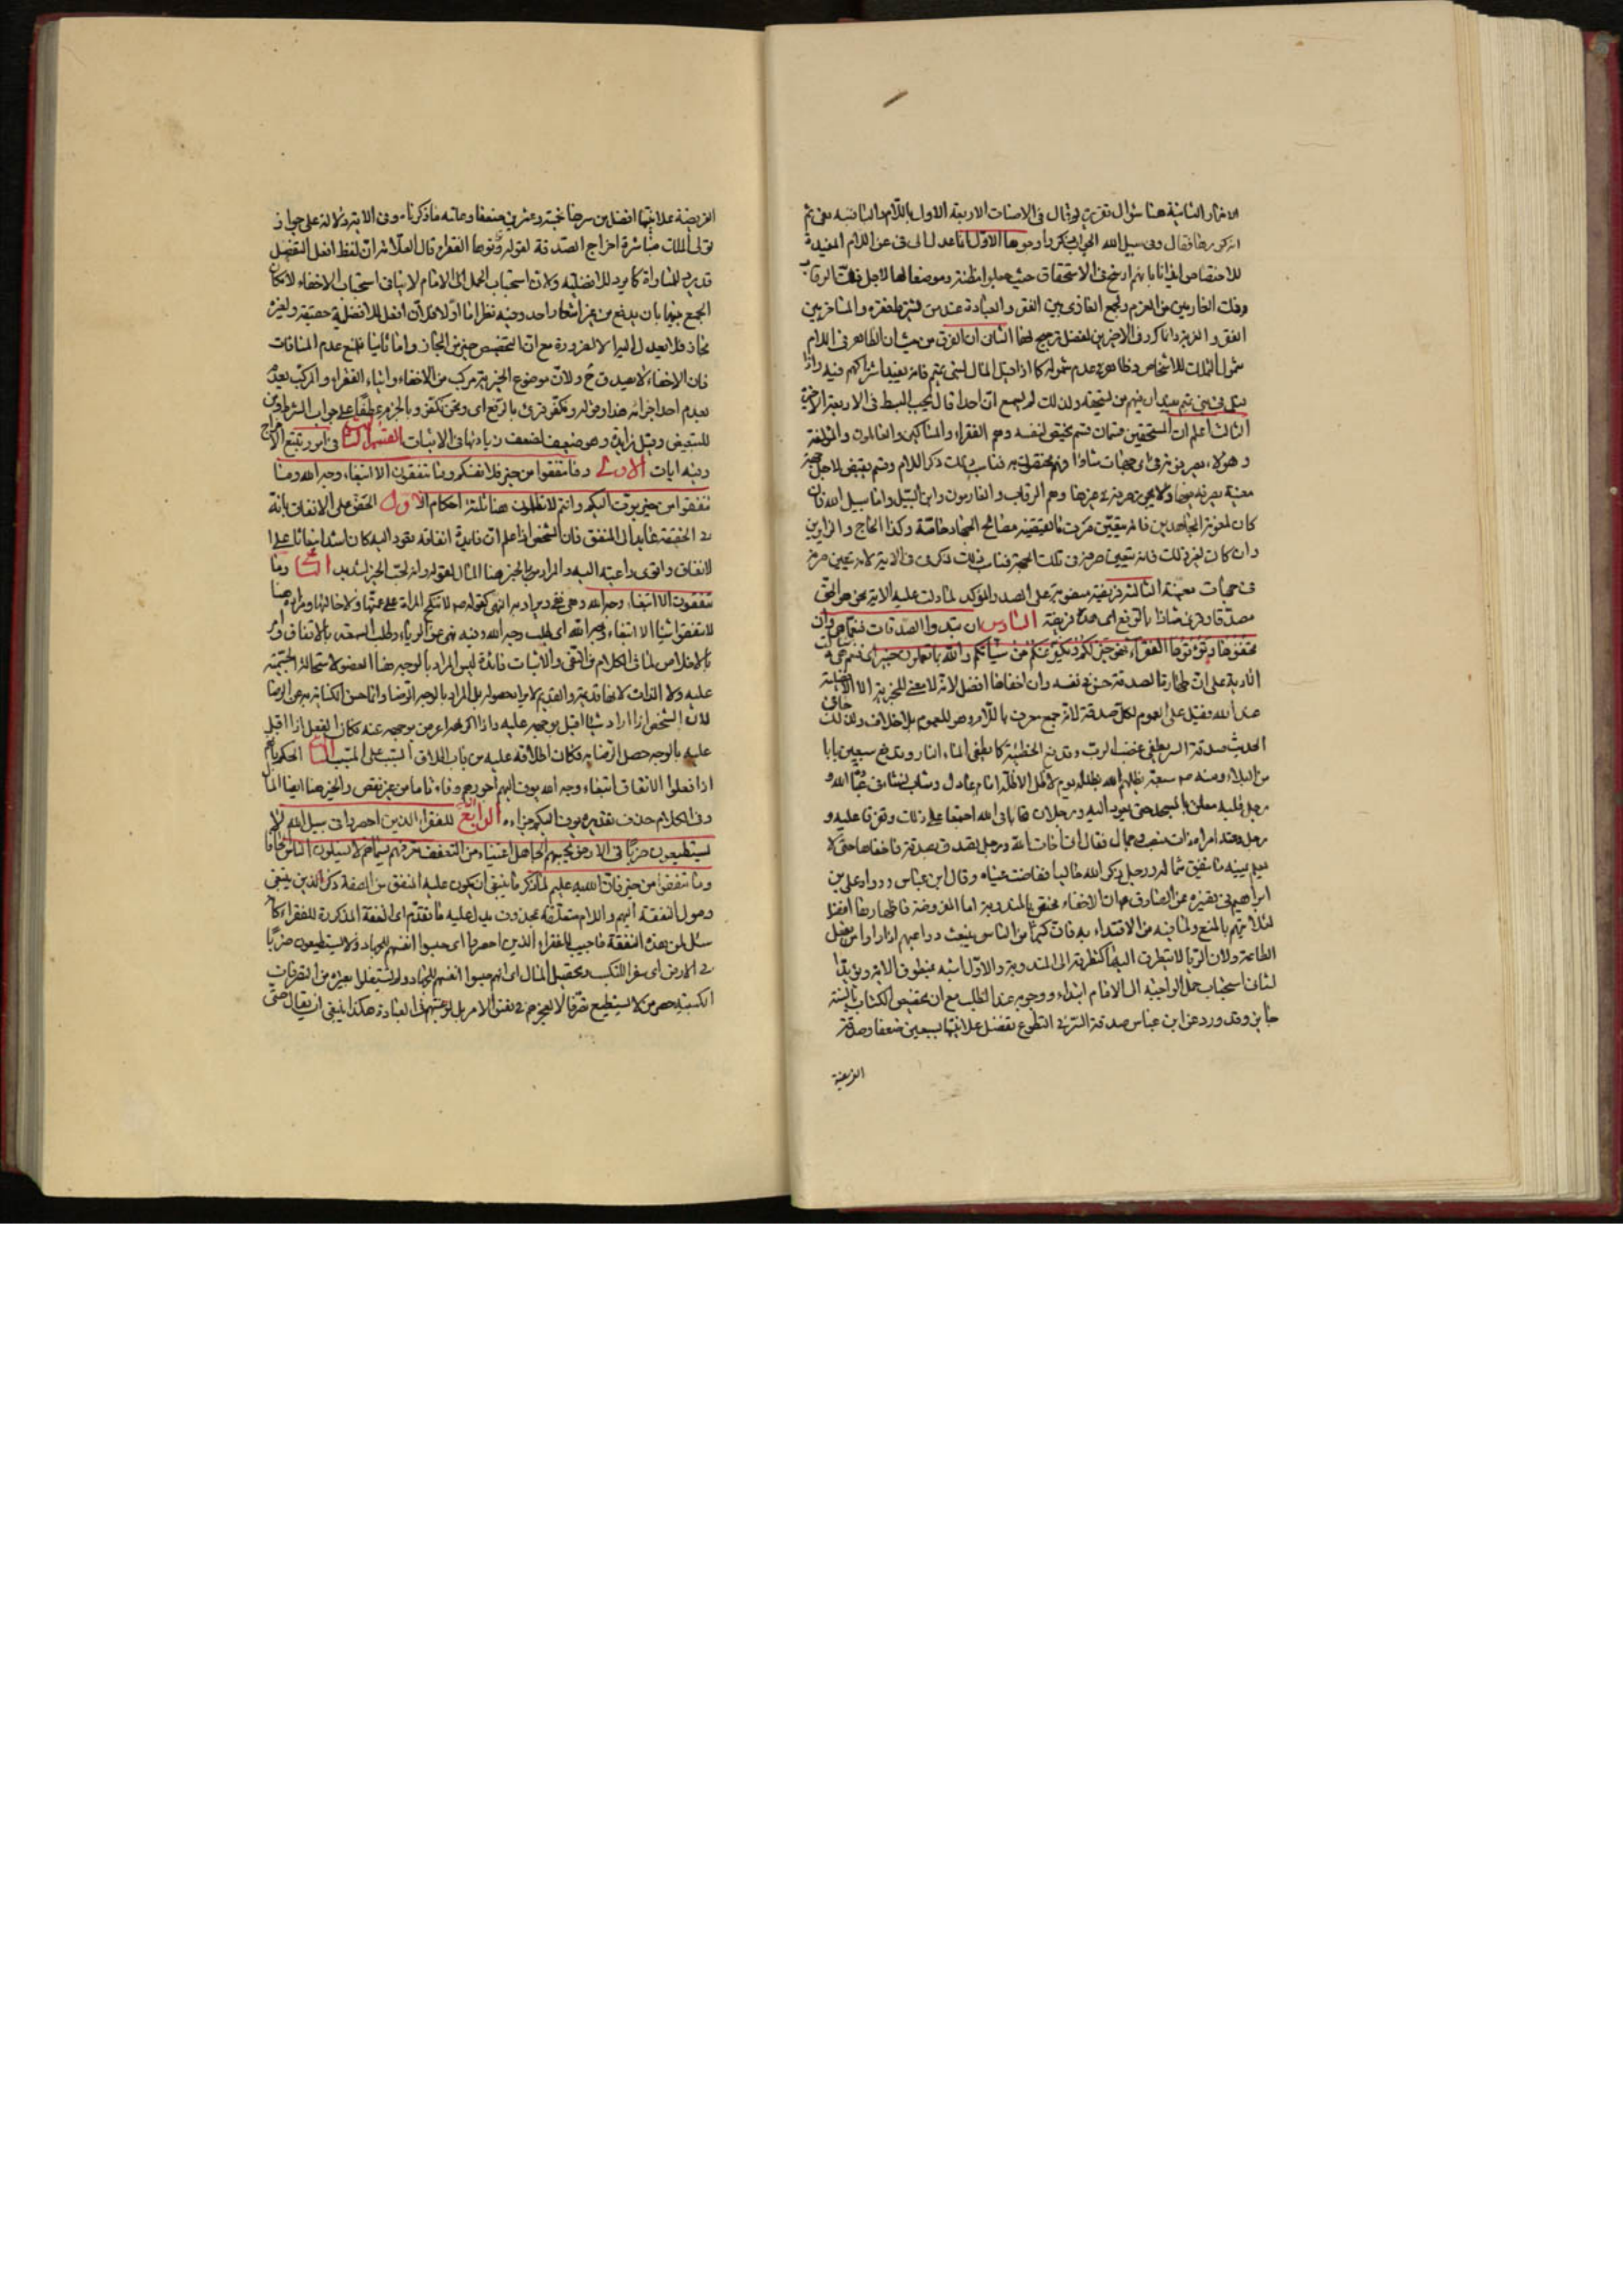 الاشارة الثانية هنا سؤال تقريره لو قال فى الاصناف الاربعة الاول باللام والثانية بفى ثم
فقال وفى سبيل الله الجواب ذكروا وجوها الاول انما عدل الى فى عن اللام المفيدة
للاختصاص ايذانا بانهم ارسخ فى الاستحقاق حيث جعلوا مظنة وموضعا لها لاجل فك الرقاب
وفك الغارمين من الغرم ولجمع الغازى بين الفقر والعبادة عند من فقره والمتأخرين
الفقر والغربة وانما كرر فى الاخيرين لفضل ترجيح لهما الثانى ان الفرق من حيث ان الظاهر فى اللام
شمول الملك للاشخاص وظاهر فى عدم شموله كما اذا قيل المال لبنى تميم فانه يفيد اشراكهم فيه واذا
قيل فى بنى تميم يفيد ان فيهم من يستحقه ولذلك لم نسمع ان احدا قال بجب البسط فى الاربعة الاخيرة
الثالث اعلم ان المستحقين قسمان قسم يختص لنفسه وهم الفقراء والمساكين والعاملون والمؤلفة
وهولاء يصرفونه فى اى جهات شاؤا فهم مختصون به فناسب ذلك ذكر اللام وقسم يقبض لاجل جهة
معينة يصرفه فيها ولا يجوز صرفه فى غيرها وهم الرقاب والغارمون وابن السبيل واما سبيل الله فان
كان لمعونة المجاهدين فانه يتعين صرف ما يقبضه مصالح الجهاد خاصة وكذا الحاج والزايرين
وان كان لغير ذلك فانه يتعين صرفه فى تلك الجهة فناسب ذلك ذكر فى الاية لانه تعيين صرف
فى جهات معينة الثالثة فريضة منصوبة على المصدر المؤكد لما دلت عليه الاية نحو هو الحق
مصدقا وقرئ شاذا بالرفع اى هذه فريضة السادس ان تبدوا الصدقات فنعما هى وان
تخفوها وتؤتوها الفقراء فهو خير لكم ونكفر عنكم من سيئاتكم والله بما تعملون خبير اى فنعم هى
على ان اظهار الصدقة حسن فى نفسه وان اخفاها افضل لانه لا معنى للخيرية الا الافضلية
عند الله وقيل على العموم لكل صدقة لانه جمع معرف باللام وهو للعموم بلا خلاف وكذلك
الحديث صدقة السر تطفى غضب الرب وتدفع الخطيئة كما يطفى الماء النار وتدفع سبعين بابا
من البلاء وعنه ص سبعة يظلهم الله بظله يوم لا ظل الا ظله امام عادل وشاب نشأ فى عبادة الله و
رجل قلبه معلق بالمسجد حتى يعود اليه ورجلان تحابا فى الله اجتمعا على ذلك وتفرقا عليه و
رجل دعته امراة ذات منصب وجمال فقال انى اخاف الله ورجل تصدق بصدقة فاخفاها حتى لا
يعلم يمينه ما تنفق شماله ورجل ذكر الله خاليا ففاضت عيناه وقال ابن عباس ورواه على بن
ابراهيم فى تفسيره عن الصادق ع ان الاخفاء مختص بالمندوبة اما المفروضة فاظهارها افضل
لئلا يتهم بالمنع ولما فيه من الاقتداء به فان كثيرا من الناس ينبعث دواعيهم اذا راوا من يفعل
الطاعة ولان الريا لا يتطرق اليها كتطرقه الى المندوبة والاول اشبه بمنطوق الاية ويؤيده
لنا استحباب حمل الواجبة الى الامام ابتداء ووجوبه عند الطلب مع ان تخصيص الكتاب بالسنة
جايز وقد ورد عن ابن عباس صدقة السر فى التطوع تفضل علانيتها بسبعين ضعفا وصدقة
الفريضة
الفريضة علانيتها افضل من سرها بخمسة وعشرين ضعفا وعاته ماذكرناه وفى الاية دلالة على جواز
تولى المالك مباشرة اخراج الصدقة لقوله وتؤتوها الفقراء قال العلامة ان لفظ افعل التفضيل
قد يرد للمساواة كما يرد للافضلية ولان استحباب الحمل الى الامام لا ينافى استحباب الاخفاء لامكان
الجمع بينهما بان يدفع من غير اشعار احد وفيه نظر اما اولا فلان افعل للافضلية حقيقة ولغيره
مجاز فلا يعدل اليه الا لضرورة مع ان التخصيص خير من المجاز واما ثانيا فلمنع عدم المنافات
فان الاخفاء لا يصدق ح ولان موضوع الخيرية مركب من الاخفاء وايتاء الفقراء والمركب يعدم
بعدم احد اجزائه هذا وقوله ونكفر قرئ بالرفع اى ونحن نكفر وبالجزم عطفا على جواب الشرط ومن
للتبعيض وقيل زايدة وهو ضعيف لضعف زيادتها فى الاثبات القسم الثالث فى امور تتبع الاخراج
وفيه ايات الاولى وما تنفقوا من خير فلانفسكم وما تنفقون الا ابتغاء وجه الله وما
تنفقوا من خير يوف اليكم وانتم لا تظلمون هنا ثلثة احكام الاول الحث على الانفاق بانه
فى الحقيقة عايد الى المنفق فان الشخص اذا علم ان فايدة انفاقه تعود اليه كان اشد انبعاثا على
الانفاق واقوى داعية اليه والمراد بالخير هنا المال لقوله وانه لحب الخير لشديد الثانى وما
تنفقون الا ابتغاء وجه الله وهى نفى ويراد به النهى كقوله ص لا تنكح المراة على عمتها ولا خالتها ومراد هنا
لا تنفقوا شيئا الا ابتغاء وجه الله اى لطلب وجه الله وفيه نهى عن الرياء وطلب السمعة بالانفاق وامر
بالاخلاص لما فى الكلام من النفى والاثبات فائدة ليس المراد بالوجه هنا العضو لاستحالة الجسمية
عليه ولا الذات لانها قديمة والقديم لا يراد حصوله بل المراد بالوجه الرضا وانما حسن الكناية به عن الرضا
لان الشخص اذا اراد شيئا اقبل بوجهه عليه واذا كرهه اعرض بوجهه عنه فكان الفعل اذا اقبل
عليه بالوجه حصل الرضا به فكان اطلاقه عليه من باب اطلاق السبب على المسبب الثالث الحكم بانهم
اذا فعلوا الانفاق ابتغاء وجه الله يوف اليهم اجورهم وفاء تاما من غير نقص والخير هنا ايضا المال
وفى الكلام حذف تقديره يوف اليكم جزاءه الرابع للفقراء الذين احصروا فى سبيل الله لا
يستطيعون ضربا فى الارض يحسبهم الجاهل اغنياء من التعفف تعرفهم بسيماهم لا يسئلون الناس الحافا
وما تنفقوا من خير فان الله به عليم لما ذكر ما ينبغى ان يكون عليه المنفق من الصفة ذكر الذين ينبغى
وصول النفقة اليهم واللام متعلقة بمحذوف يدل عليه ما تقدم اى النفقة المذكورة للفقراء كانه
سئل لمن هذه النفقة فاجيب للفقراء الذين احصروا اى حبسوا انفسهم للجهاد ولا يستطيعون ضربا
فى الارض اى سفرا للتكسب وتحصيل المال اى انهم حبسوا انفسهم للجهاد ولم يشتغلوا بغيره من التصرفات
لا يستطيع تصرفا لا لعجزهم فى نفس الامر بل لرغبتهم فى العبادة هكذا ينبغى ان يقال حتى